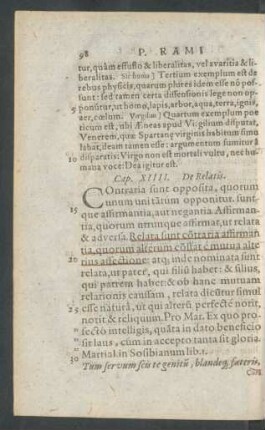 98 P. RAMI
tur, quàm effusio & liberalitas, vel avaritia & li-
beralitas. Sic homo] Tertium exemplum est de
rebus physicis, quarum plures idem esse nō pos-
sunt: sed tamen certa dissensionis lege non op-
5 ponūtur, ut homo, lapis, arbor, aqua, terra, ignis,
aer, cœlum. Virgilius] Quartum exemplum poe
ticum est, ubi Æneas apud Virgilium disputat,
Venerem, quæ Spartanę virginis habitum simu
labat, deam tamen esse: argumentum sumitur à
10 disparatis: Virgo non est mortali vultu, nec hu-
mana voce: Dea igitur est.
Cap. XIIII. De Relatis.
Contraria sunt opposita, quorum
unum uni tātum opponitur. sunt-
15 que affirmantia, aut negantia. Affirman-
tia, quorum utrunque affirmat, ut relata
& adversa. Relata sunt cōtraria affirman
tia, quorum alterum cōstat è mutua alte
rius affectione: atq; inde nominata sunt
20 relata, ut pater, qui filiū habet: & filius,
qui patrem habet: & ob hanc mutuam
relationis causam, relata dicūtur simul
esse natura, ut qui alterū perfectè norit,
norit & reliquum. Pro Mar. Ex quo pro-
25 fectò intelligis, quāta in dato beneficio
sit laus, cum in accepto tanta sit gloria.
Martial. in Sosibianum lib. 1.
30 Tum servum scis te genitū, blandeq; fateris,